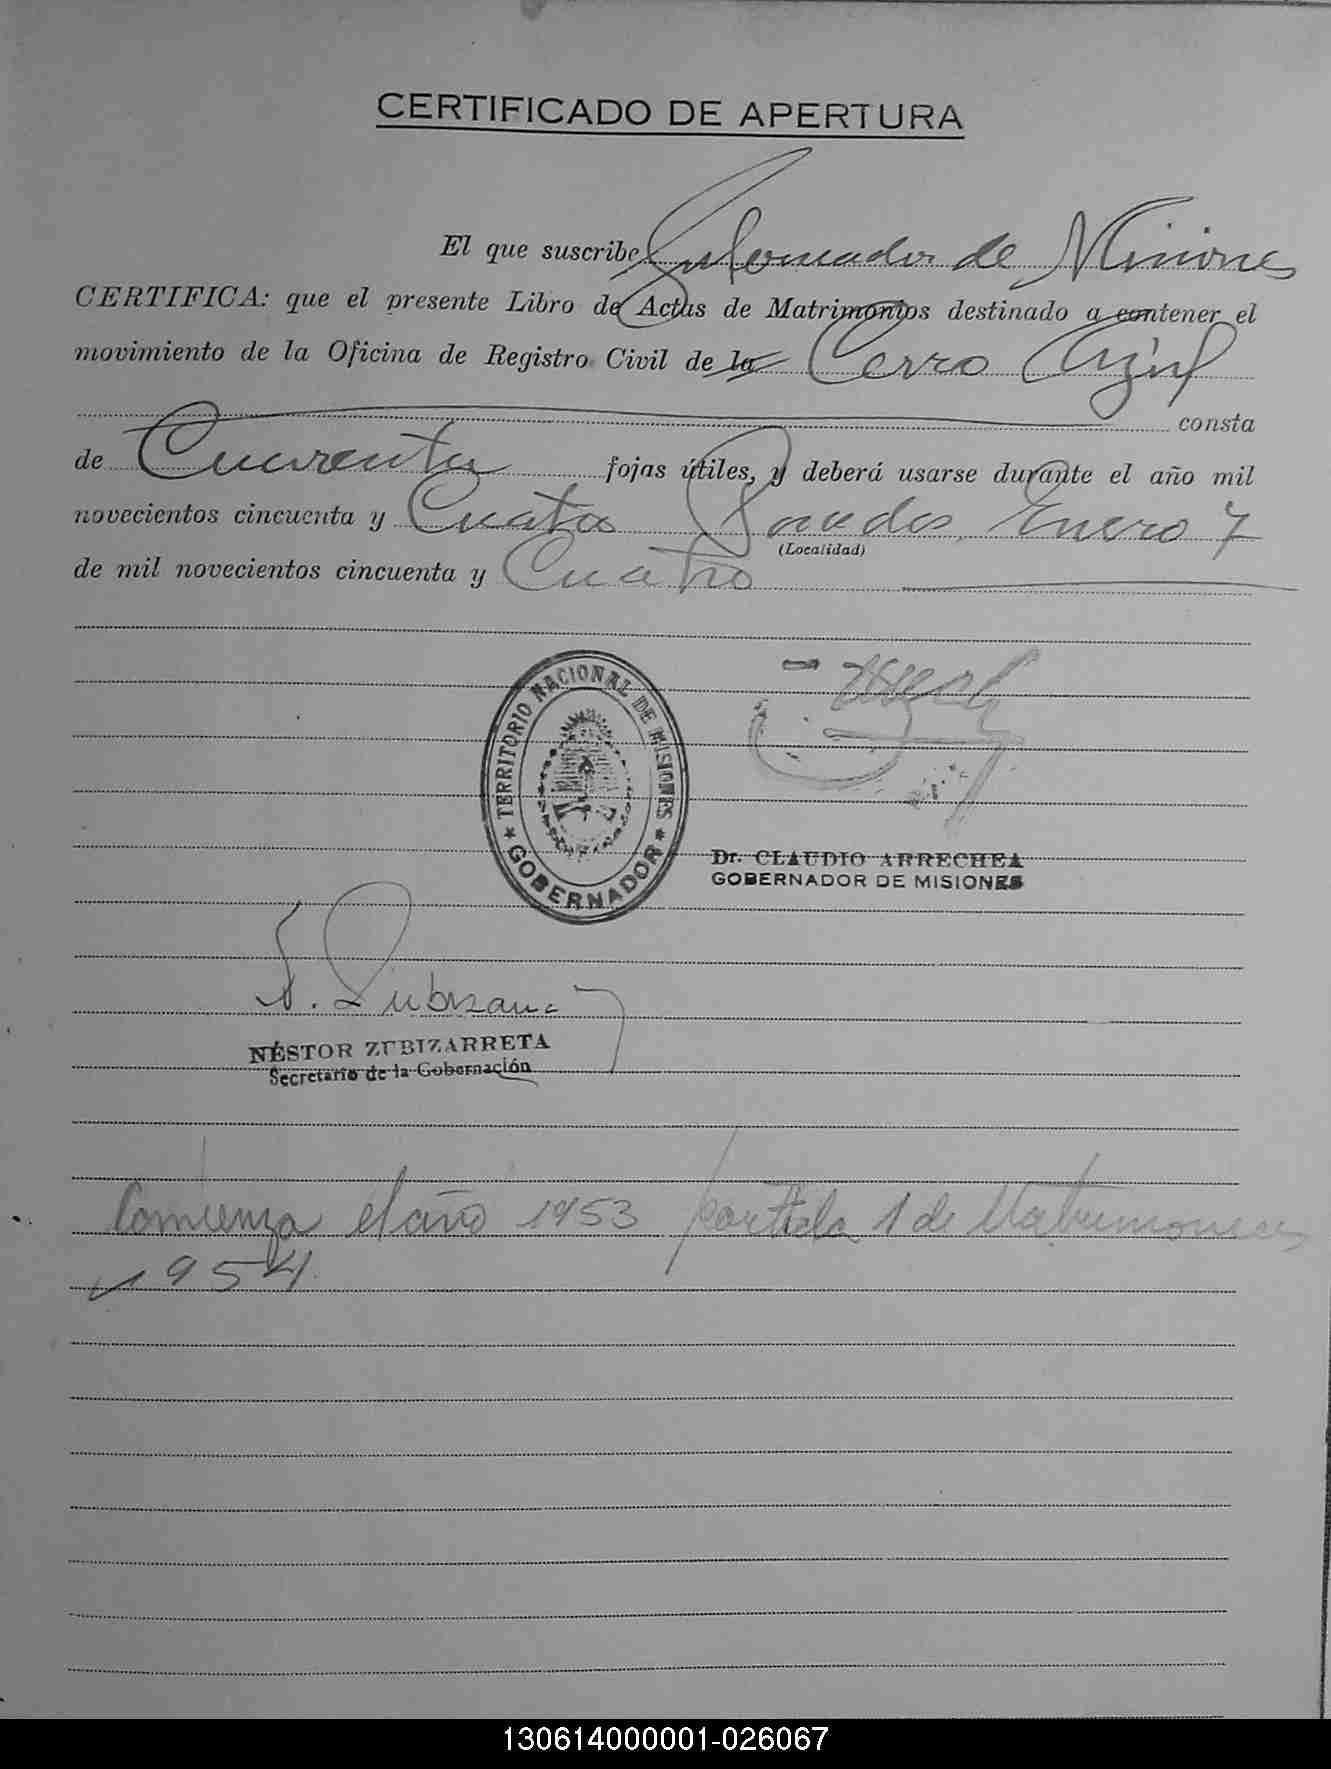 CERTIFICADO DE APERTURA
El que suscribe Gobernador de Misiones
CERTIFICA: que el presente Libro de Actas de Matrimonios destinado a contener el
movimiento de la Oficina de Registro Civil de la Cerro Azul
consta
de Cuarenta fojas útiles, y deberá usarse durante el año mil
novecientos cincuenta y Cuatro Posadas, Enero 7
(Localidad)
de mil novecientos cincuenta y Cuatro
TERRITORIO NACIONAL DE MISIONES
* GOBERNADOR *
Dr. CLAUDIO ARRECHEA
GOBERNADOR DE MISIONES
N. Zubizarreta
NÉSTOR ZUBIZARRETA
Secretario de la Gobernación
Comienza el año 1953 partida 1 de Matrimonios
1954.
130614000001-026067